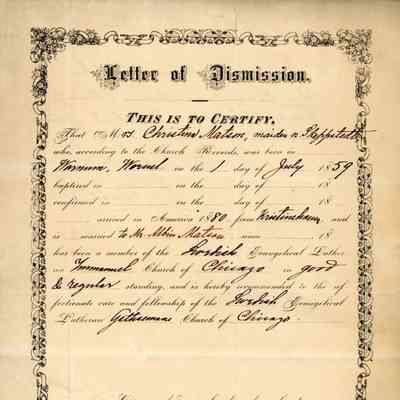 Letter of Dismission.
THIS IS TO CERTIFY,
That Mrs Christine Matson, maiden n.
who, according to the Church Records, was born in
on the 1 day of July 1859
baptized in in the day of 18
confirmed in on the day of 18
arrived in America 1880 from and
is married to Mr Albin Matson anno 18
has been a member of the Swedish Evangelical Luther
an Immanuel Church of Chicago in good
& regular standing, and is hereby recommended to the af
fectionate care and fellowship of the Swedish Evangelical
Lutheran Gethsemane Church of Chicago.